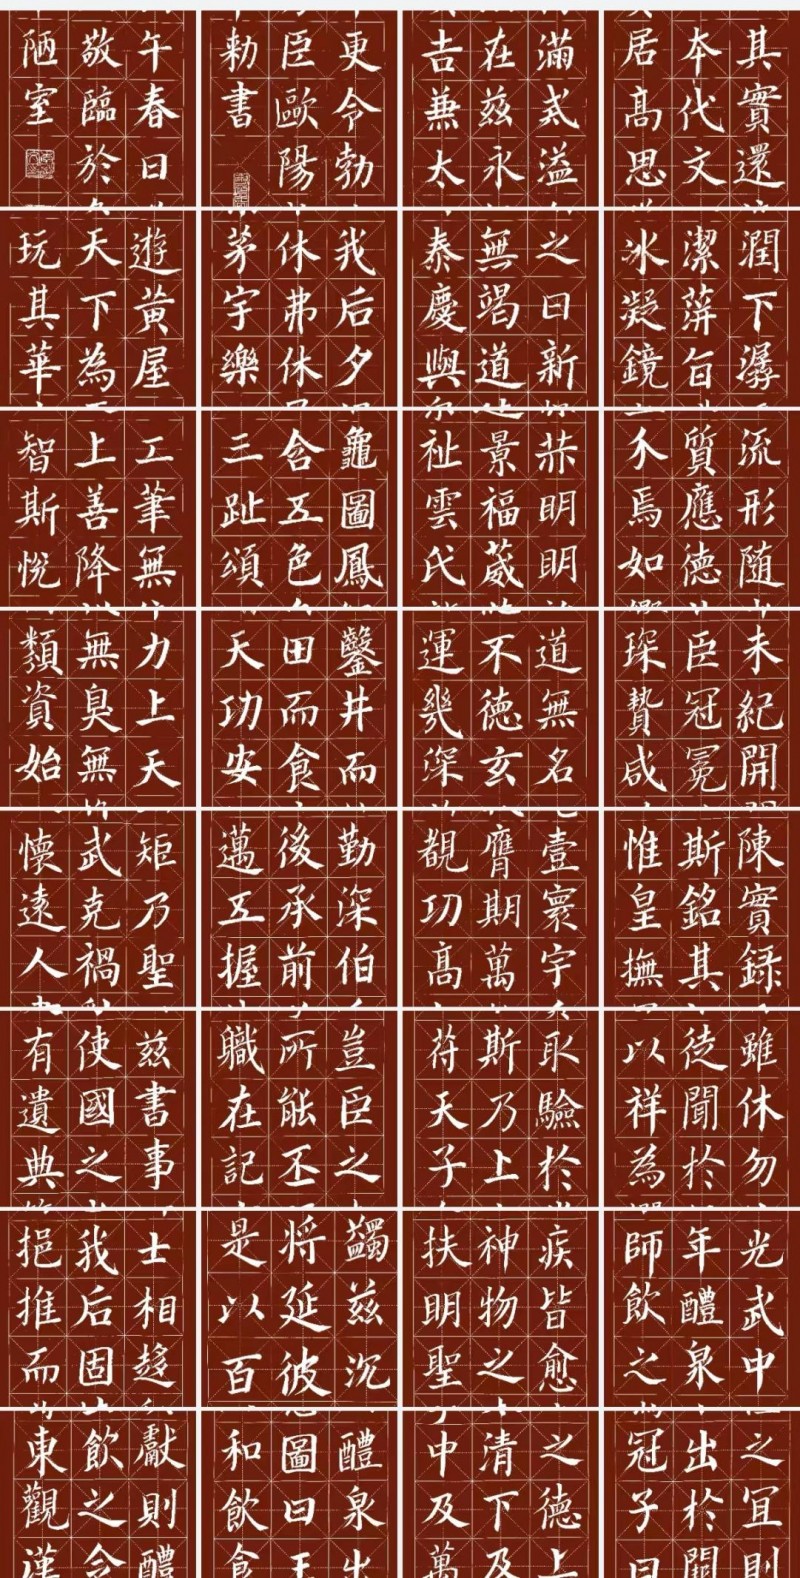 其實還
夲代文
居高思
滿戒溢
在兹永
吉兼太
更令勃
臣歐陽
勑書
午春日
敬臨於
陋室
潤下潺
潔蓱旨
冰凝鏡
之日新
無竭道
泰慶與
我后夕
休弗休
茅宇樂
遊黄屋
天下為
玩其華
流形随
質應德
介焉如
明明
景福葳
祉雲氏
龜圖鳳
含五色
三趾頌
工筆無
上善降
智斯悅
未紀開
臣冠冕
琛贄咸
道無名
不德玄
運幾深
鑿井而
田而食
天功安
力上天
無臭無
類資始
陳實録
斯銘其
惟皇撫
壹寰宇
膺期萬
覩功高
勤深伯
後承前
邁五握
矩乃聖
武克禍
懷遠人
雖休勿
徒聞於
以祥為
取驗於
斯乃上
苻天子
豈臣之
所能丕
職在記
兹書事
使國之
有遺典
光武中
年醴泉
師飲之
疾皆愈
神物之
扶明聖
蠲兹沉
將延彼
是以百
士相趍
我后固
挹推而
之宜則
出於闕
冠子曰
之德上
清下及
中及萬
醴泉出
圖曰王
和飲食
獻則醴
飲之令
東觀漢